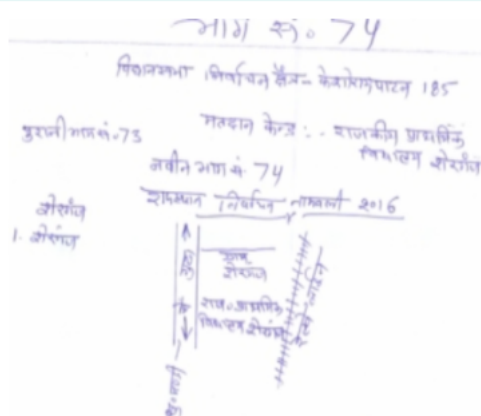 भाग सं. 74
विधानसभा निर्वाचन क्षेत्र - केशोरायपाटन 185
पुरानी भाग सं. 73
मतदान केन्द्र : - राजकीय प्राथमिक
विद्यालय शेरगंज
नवीन भाग सं. 74
राजस्थान निर्वाचन नामावली 2016
शेरगंज
1. शेरगंज
ग्राम
शेरगंज
विद्यालय शेरगंज
रेल्वे लाईन